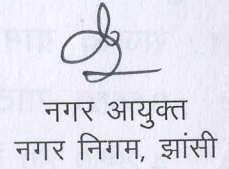 नगर आयुक्त
नगर निगम, झांसी